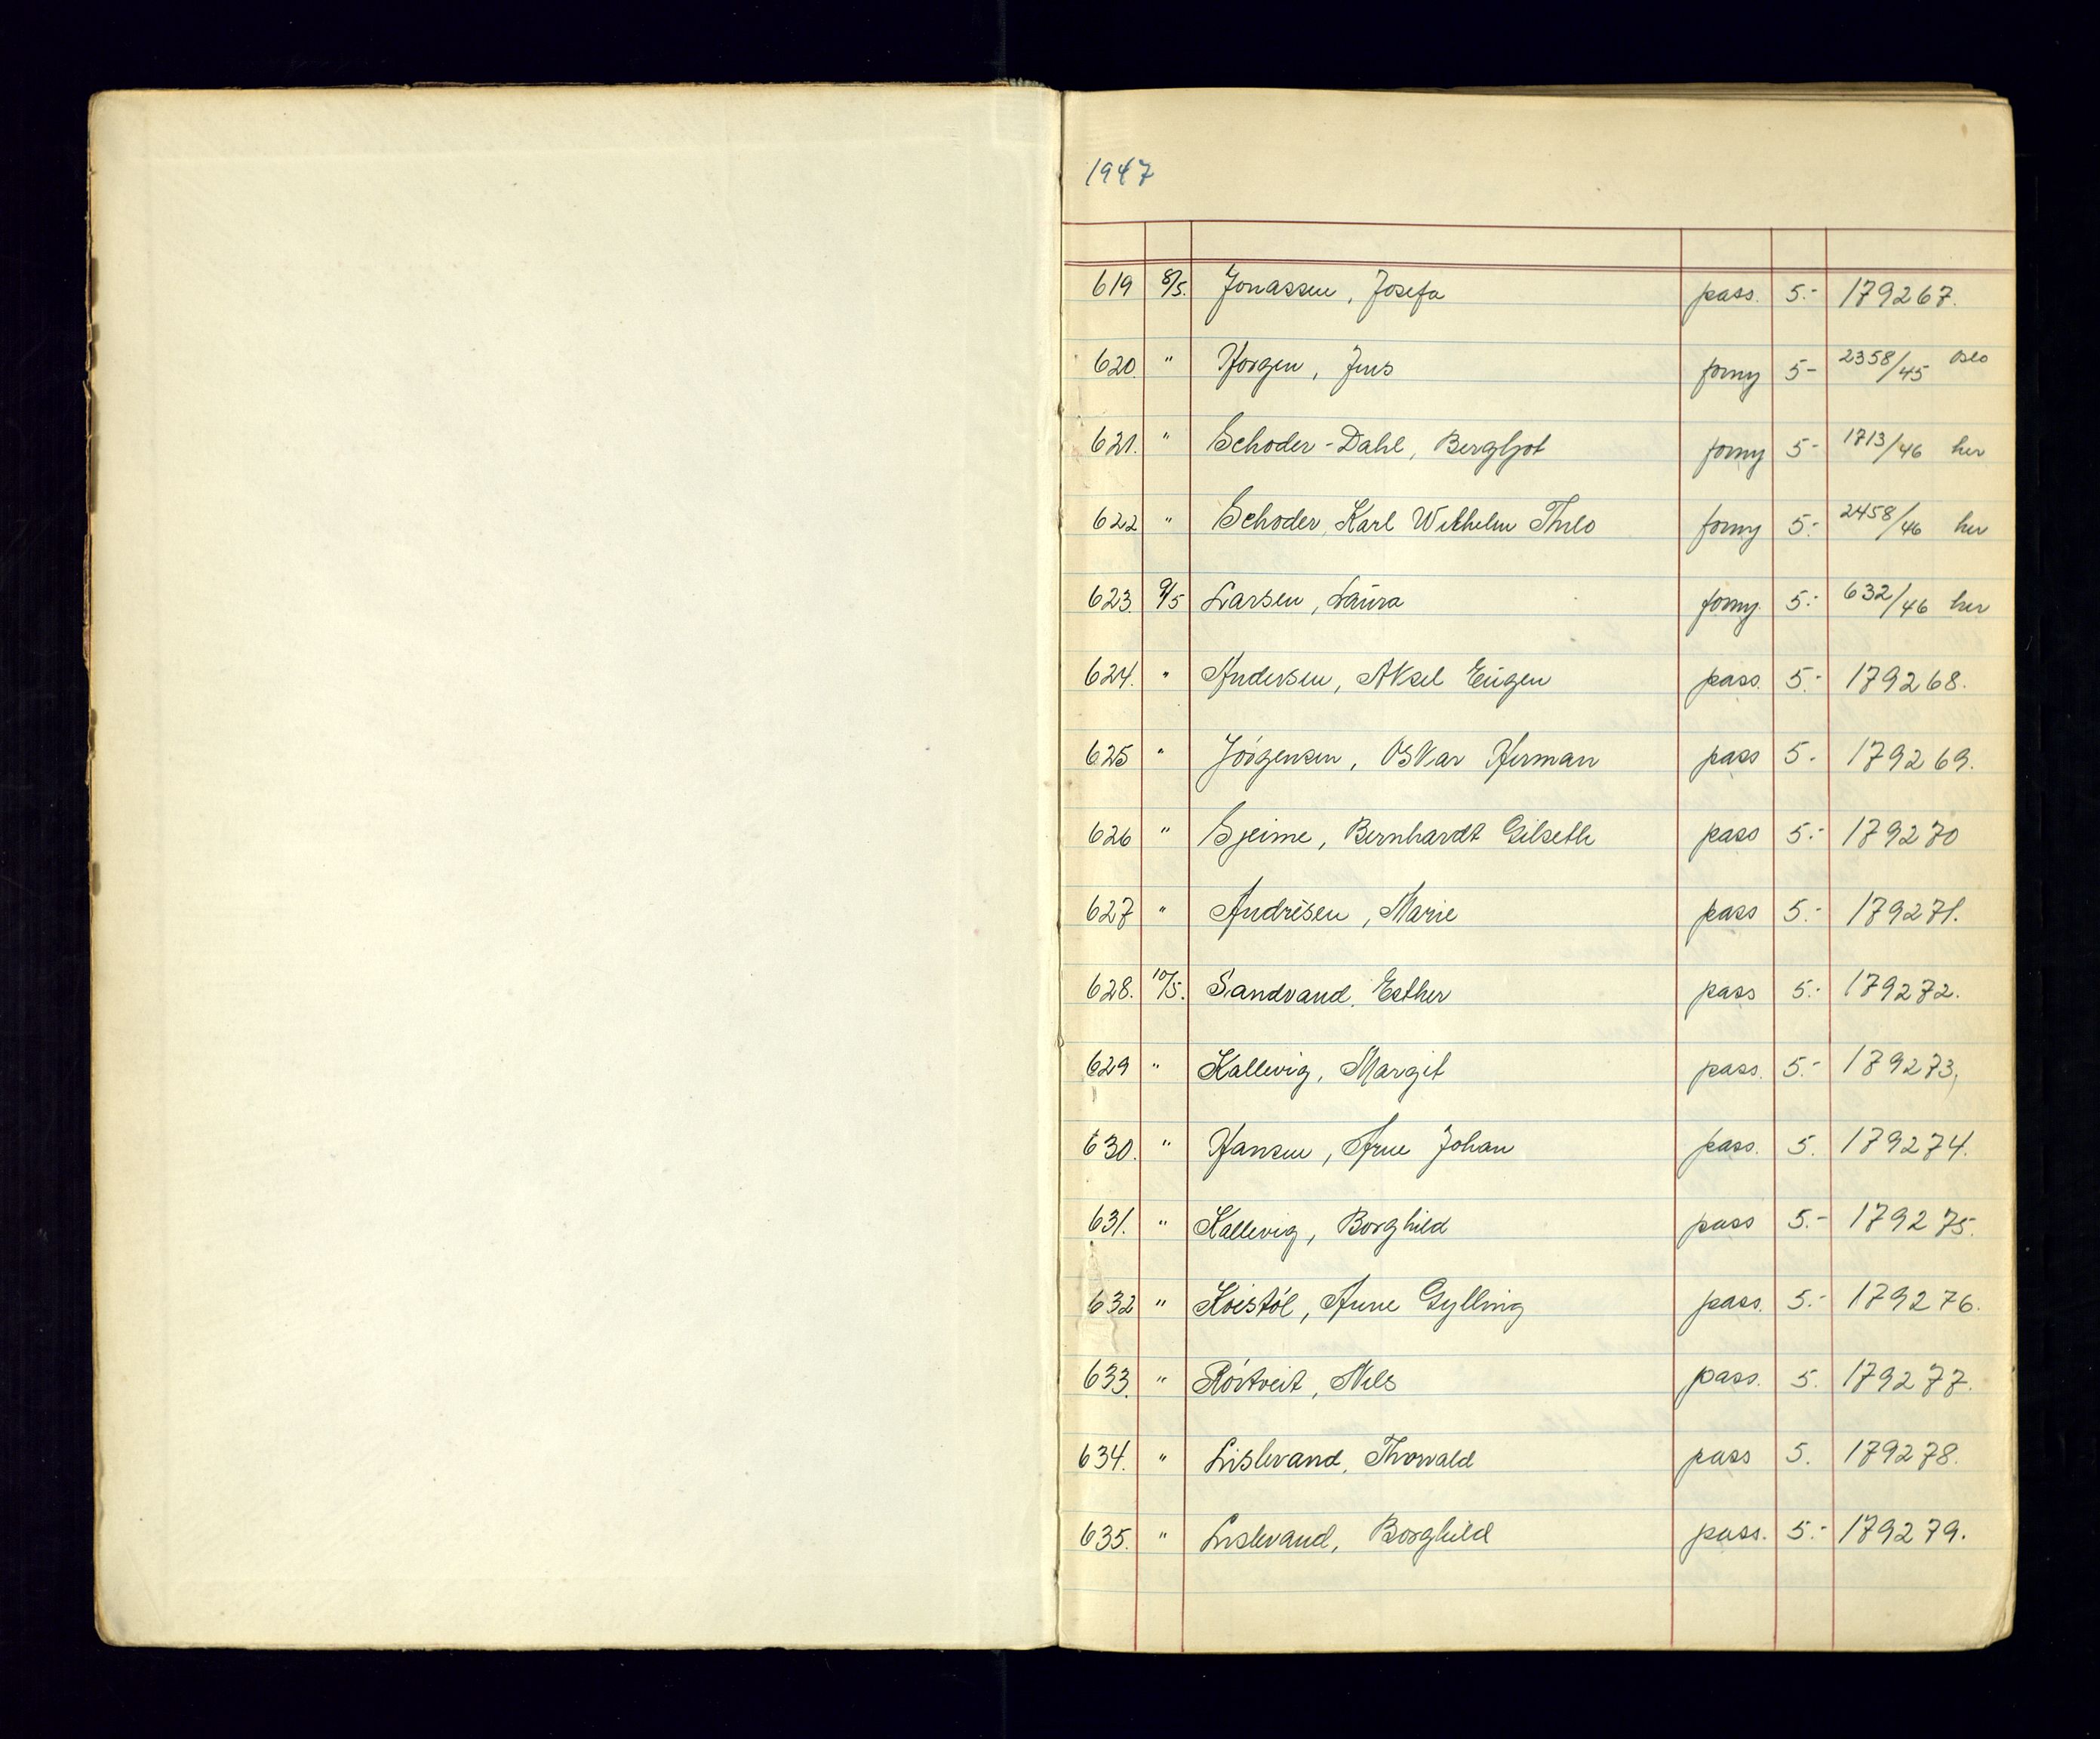 1947
619 8/5. Jonassen, Josefa pass. 5.- 179267.
620. " Horgen, Jens forny 5- 2358/45 Oslo
621. " Schoder-Dahl, Bergljot forny 5- 1713/46 her
622 " Schoder, Karl Wilhelm Thilo forny 5.- 2458/46 her
623. 9/5 Larsen, Laura forny. 5.- 632/46 her
624. " Andersen, Aksel Eugen pass. 5.- 179268.
625 " Jörgensen, Oskar Herman pass 5.- 179269.
626 " Gjeime, Bernhardt Gilseth pass 5.- 179270
627 " Andresen, Marie pass 5.- 179271.
628. 10/5. Sandvand, Esther pass 5.- 179272.
629 " Kallevig, Margit pass. 5.- 179273.
630. " Hansen, Arne Johan pass. 5. 179274.
631. " Kallevig, Borghild pass 5.- 179275.
632 " Kvistöl, Anne Gylling pass. 5.- 179276.
633. " Törtveit, Nils pass. 5. 179277.
634. " Lislevand, Thorvald pass 5. 179278.
635. " Lislevand, Borghild pass. 5.- 179279.